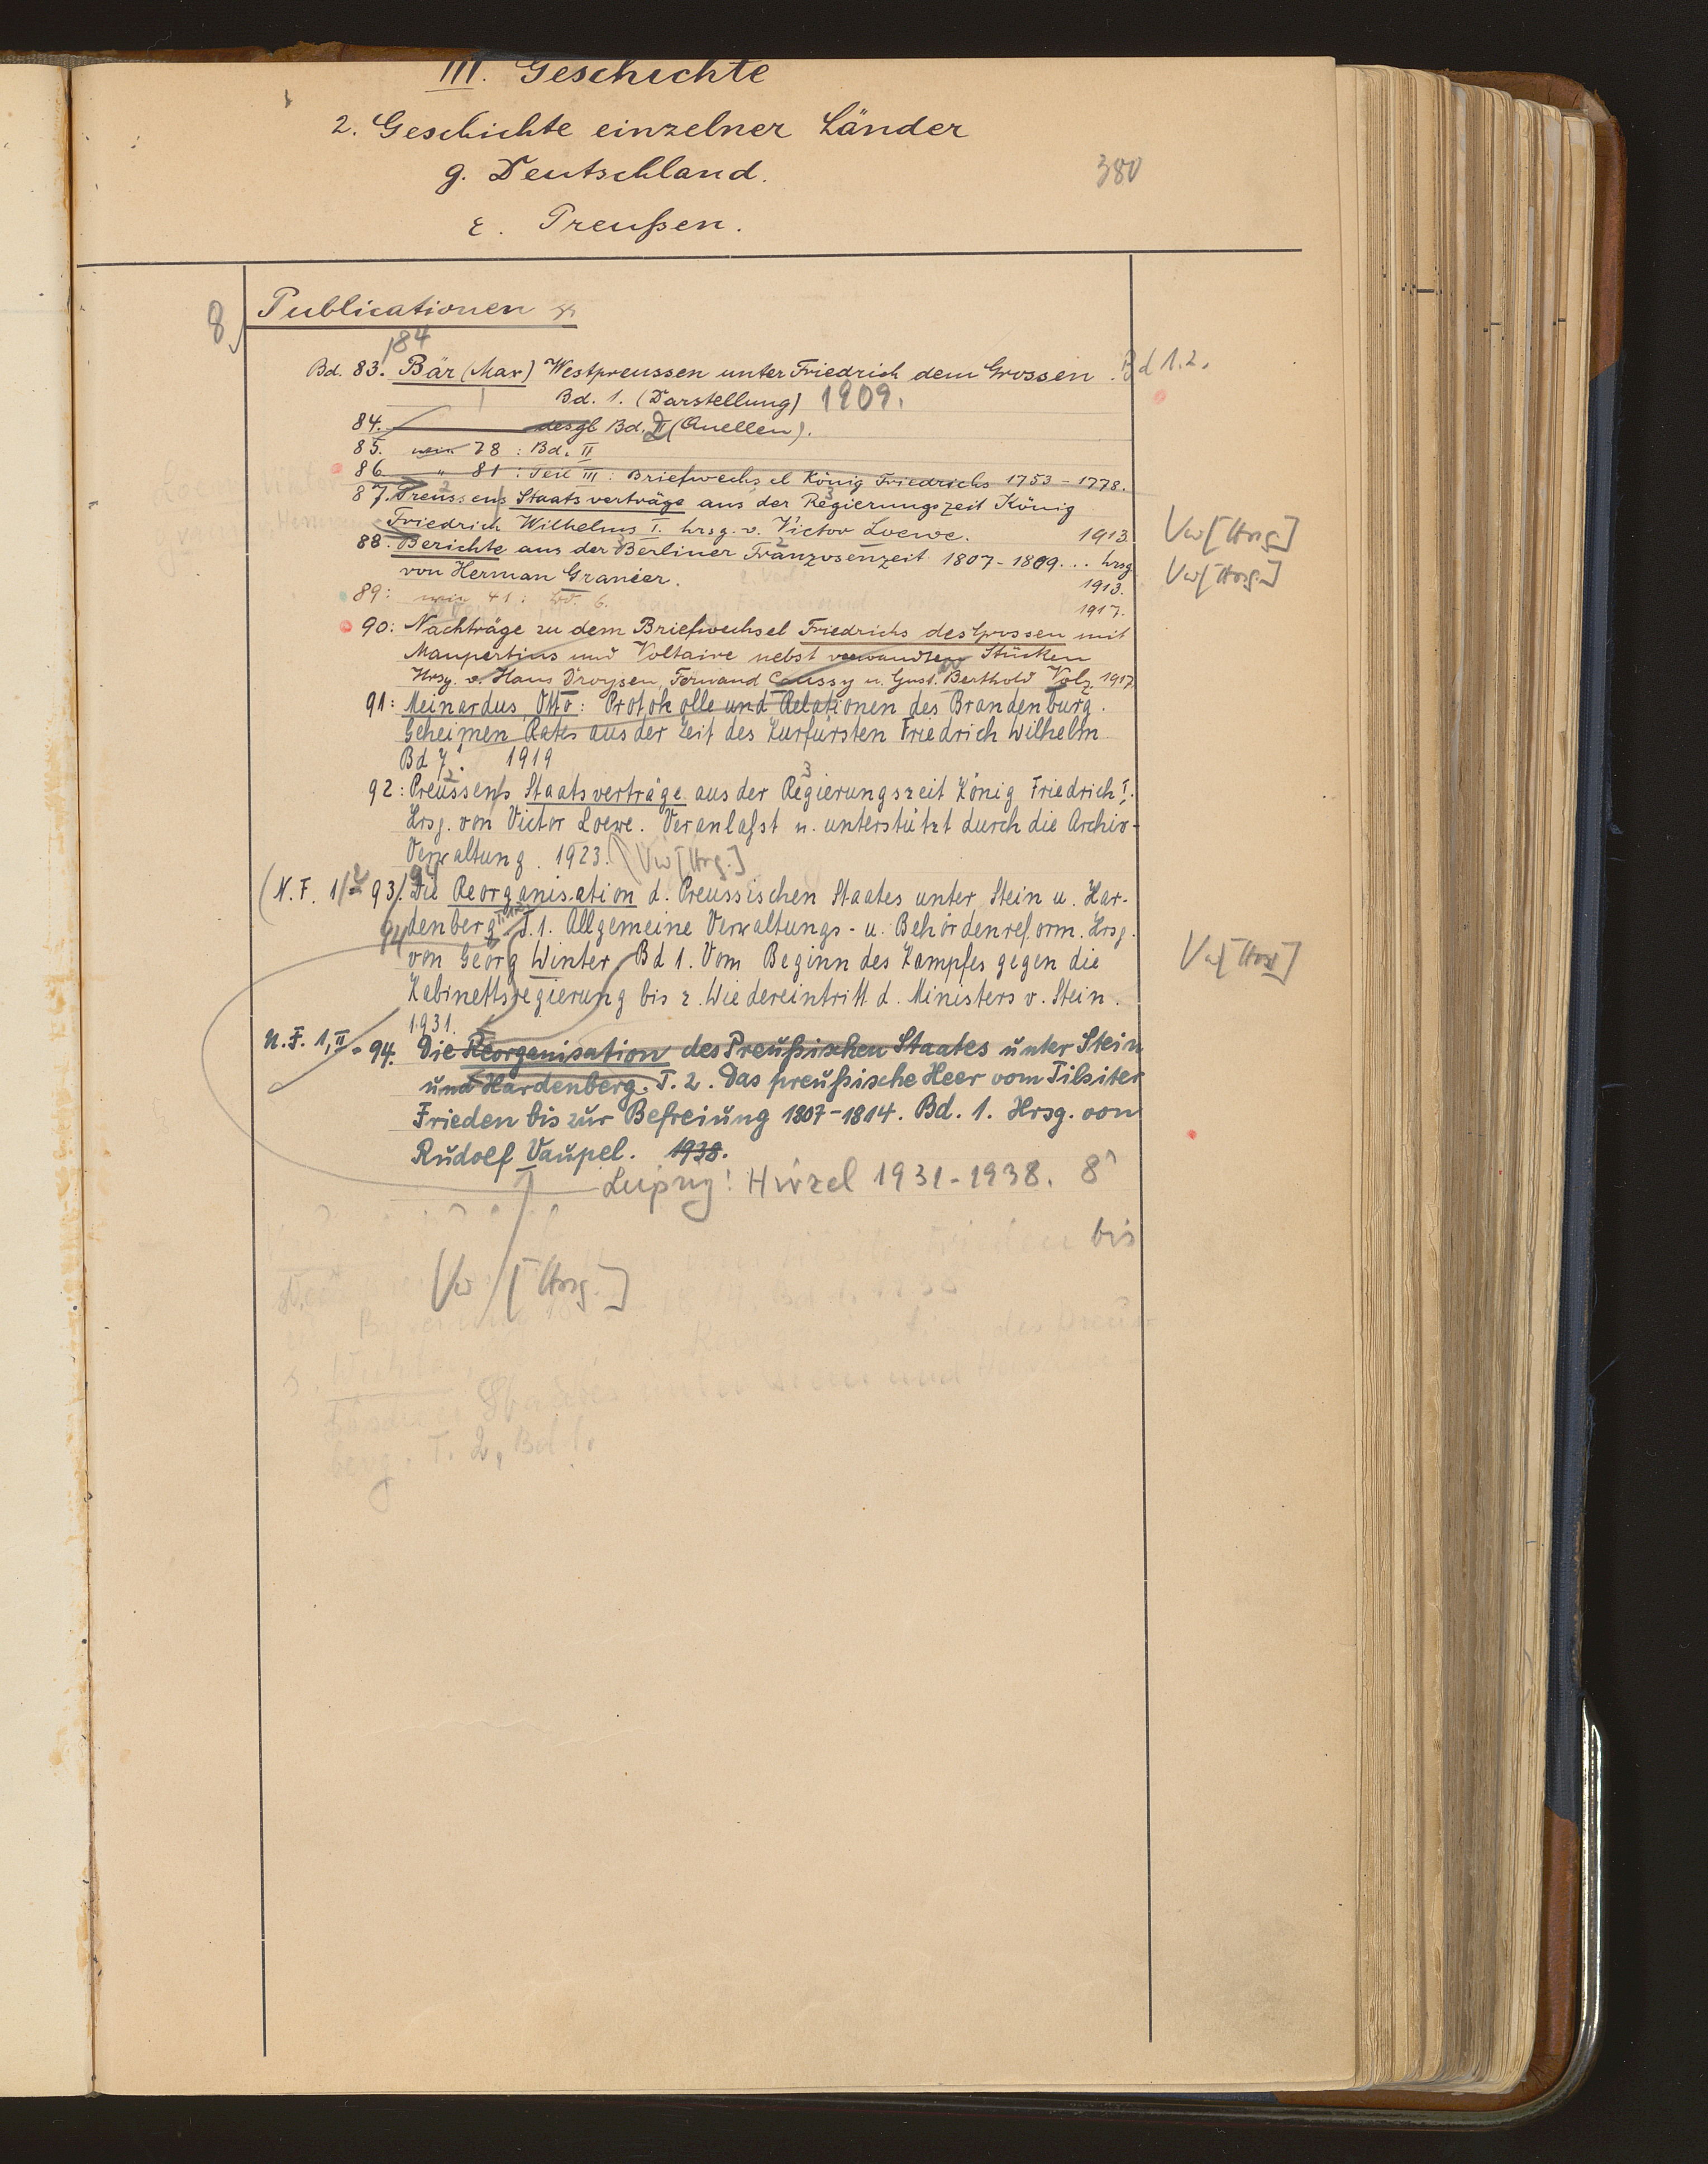 III. Geschichte
2. Geschichte einzelner Länder
g. Deutschland.
380
ε. Preußen.
8) Publicationen
/84
Bd. 83. Bär (Max) Westpreussen unter Friedrich dem Grossen. Bd 1.2.
Bd. 1. (Darstellung) 1909.
84. desgl Bd. II (Quellen).
85. wie 78 : Bd. II
86 " 81 : Teil III : Briefwechsel König Friedrichs 1753-1778.
87. Preussens Staatsverträge aus der Regierungszeit König
Friedrich Wilhelms I. hrsg. v. Victor Loewe. 1913 Vw [Hrsg]
88. Berichte aus der Berliner Franzosenzeit 1807-1809... hrsg
von Herman Granier. 1913. Vw [Hrsg.]
89: wie 41: Bd. 6. 1917.
90: Nachträge zu dem Briefwechsel Friedrichs des Grossen mit
Maupertius und Voltaire nebst verwandten Stücken
Hrsg. v. Hans Droysen, Fernand Caussy u. Gust. Berthold Volz 1917
91: Meinardus, Otto: Protokolle und Relationen des Brandenburg.
Geheimen Rates aus der Zeit des Kurfürsten Friedrich Wilhelm
Bd 7. 1919
92: Preussens Staatsverträge aus der Regierungszeit König Friedrich I.
Hrsg. von Victor Loewe. Veranlaßt u. unterstützt durch die Archiv-
Verwaltung. 1923. Vw [Hrg.]
(N.F. 1/2 = 93/94. Die Reorganisation d. Preussischen Staates unter Stein u. Har-
denberg. T. 1. Allgemeine Verwaltungs- u. Behördenreform. Hrsg.
von Georg Winter Bd 1. Vom Beginn des Kampfes gegen die Vw [Hrsg]
Kabinettsregierung bis z. Wiedereintritt d. Ministers v. Stein.
1931.
N.F. 1,II = 94. Die Reorganisation des Preußischen Staates unter Stein
und Hardenberg. T. 2. Das preußische Heer vom Tilsiter
Frieden bis zur Befreiung 1807-1814. Bd. 1. Hrsg. von
Rudolf Vaupel. 1938.
Leipzig: Hirzel 1931-1938. 8°
bis
Vw [Hrsg.]
Staates unter Stein und
berg. T. 2, Bd 1.